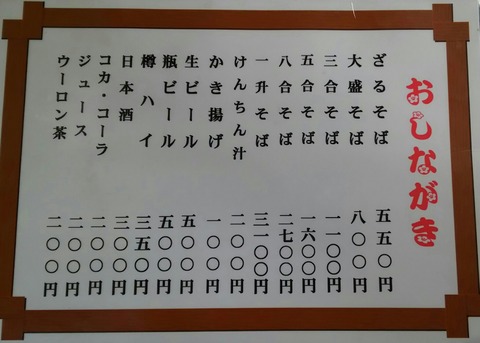 おしながき
ざるそば 五五〇円
大盛そば 八〇〇円
三合そば 一一〇〇円
五合そば 一六〇〇円
八合そば 二七〇〇円
一升そば 三一〇〇円
けんちん汁 二〇〇円
かき揚げ 一〇〇円
生ビール 五〇〇円
瓶ビール 五〇〇円
樽ハイ 三五〇円
日本酒 三〇〇円
コカ・コーラ 二〇〇円
ジュース 二〇〇円
ウーロン茶 二〇〇円